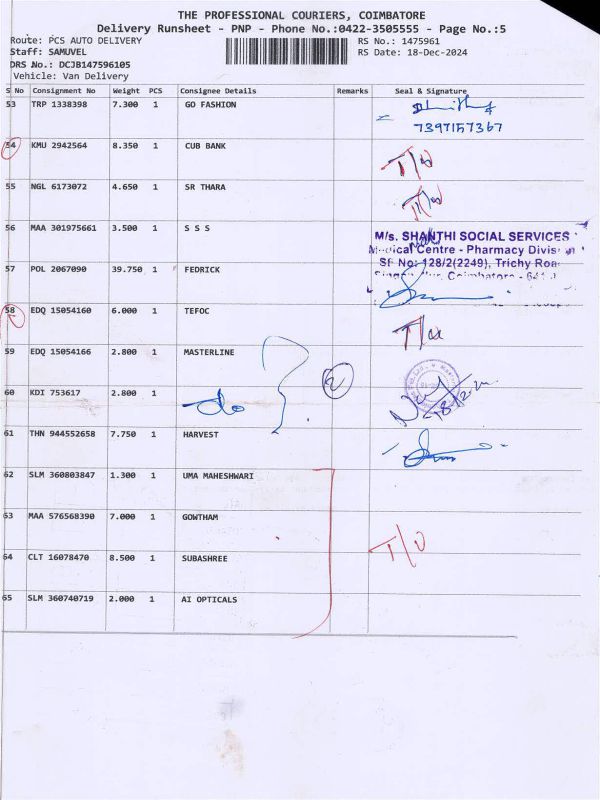 THE PROFESSIONAL COURIERS, COIMBATORE
Delivery Runsheet - PNP - Phone No.:0422-3505555 - Page No.:5
Route: PCS AUTO DELIVERY RS No.: 1475961
Staff: SAMUVEL RS Date: 18-Dec-2024
DRS No.: DCJB147596105
Vehicle: Van Delivery
S No Consignment No Weight PCS Consignee Details Remarks Seal & Signature
53 TRP 1338398 7.300 1 GO FASHION
7397157367
54 KMU 2942564 8.350 1 CUB BANK
55 NGL 6173072 4.650 1 SR THARA
56 MAA 301975661 3.500 1 S S S
M/s. SHANTHI SOCIAL SERVICES
Medical Centre - Pharmacy Division
SF No: 128/2(2249), Trichy Road
57 POL 2067090 39.750 1 FEDRICK
58 EDQ 15054160 6.000 1 TEFOC
59 EDQ 15054166 2.800 1 MASTERLINE
2
60 KDI 753617 2.800 1 do
61 THN 944552658 7.750 1 HARVEST
62 SLM 360803847 1.300 1 UMA MAHESHWARI
63 MAA 576568390 7.000 1 GOWTHAM
64 CLT 16078470 8.500 1 SUBASHREE
65 SLM 360740719 2.000 1 AI OPTICALS